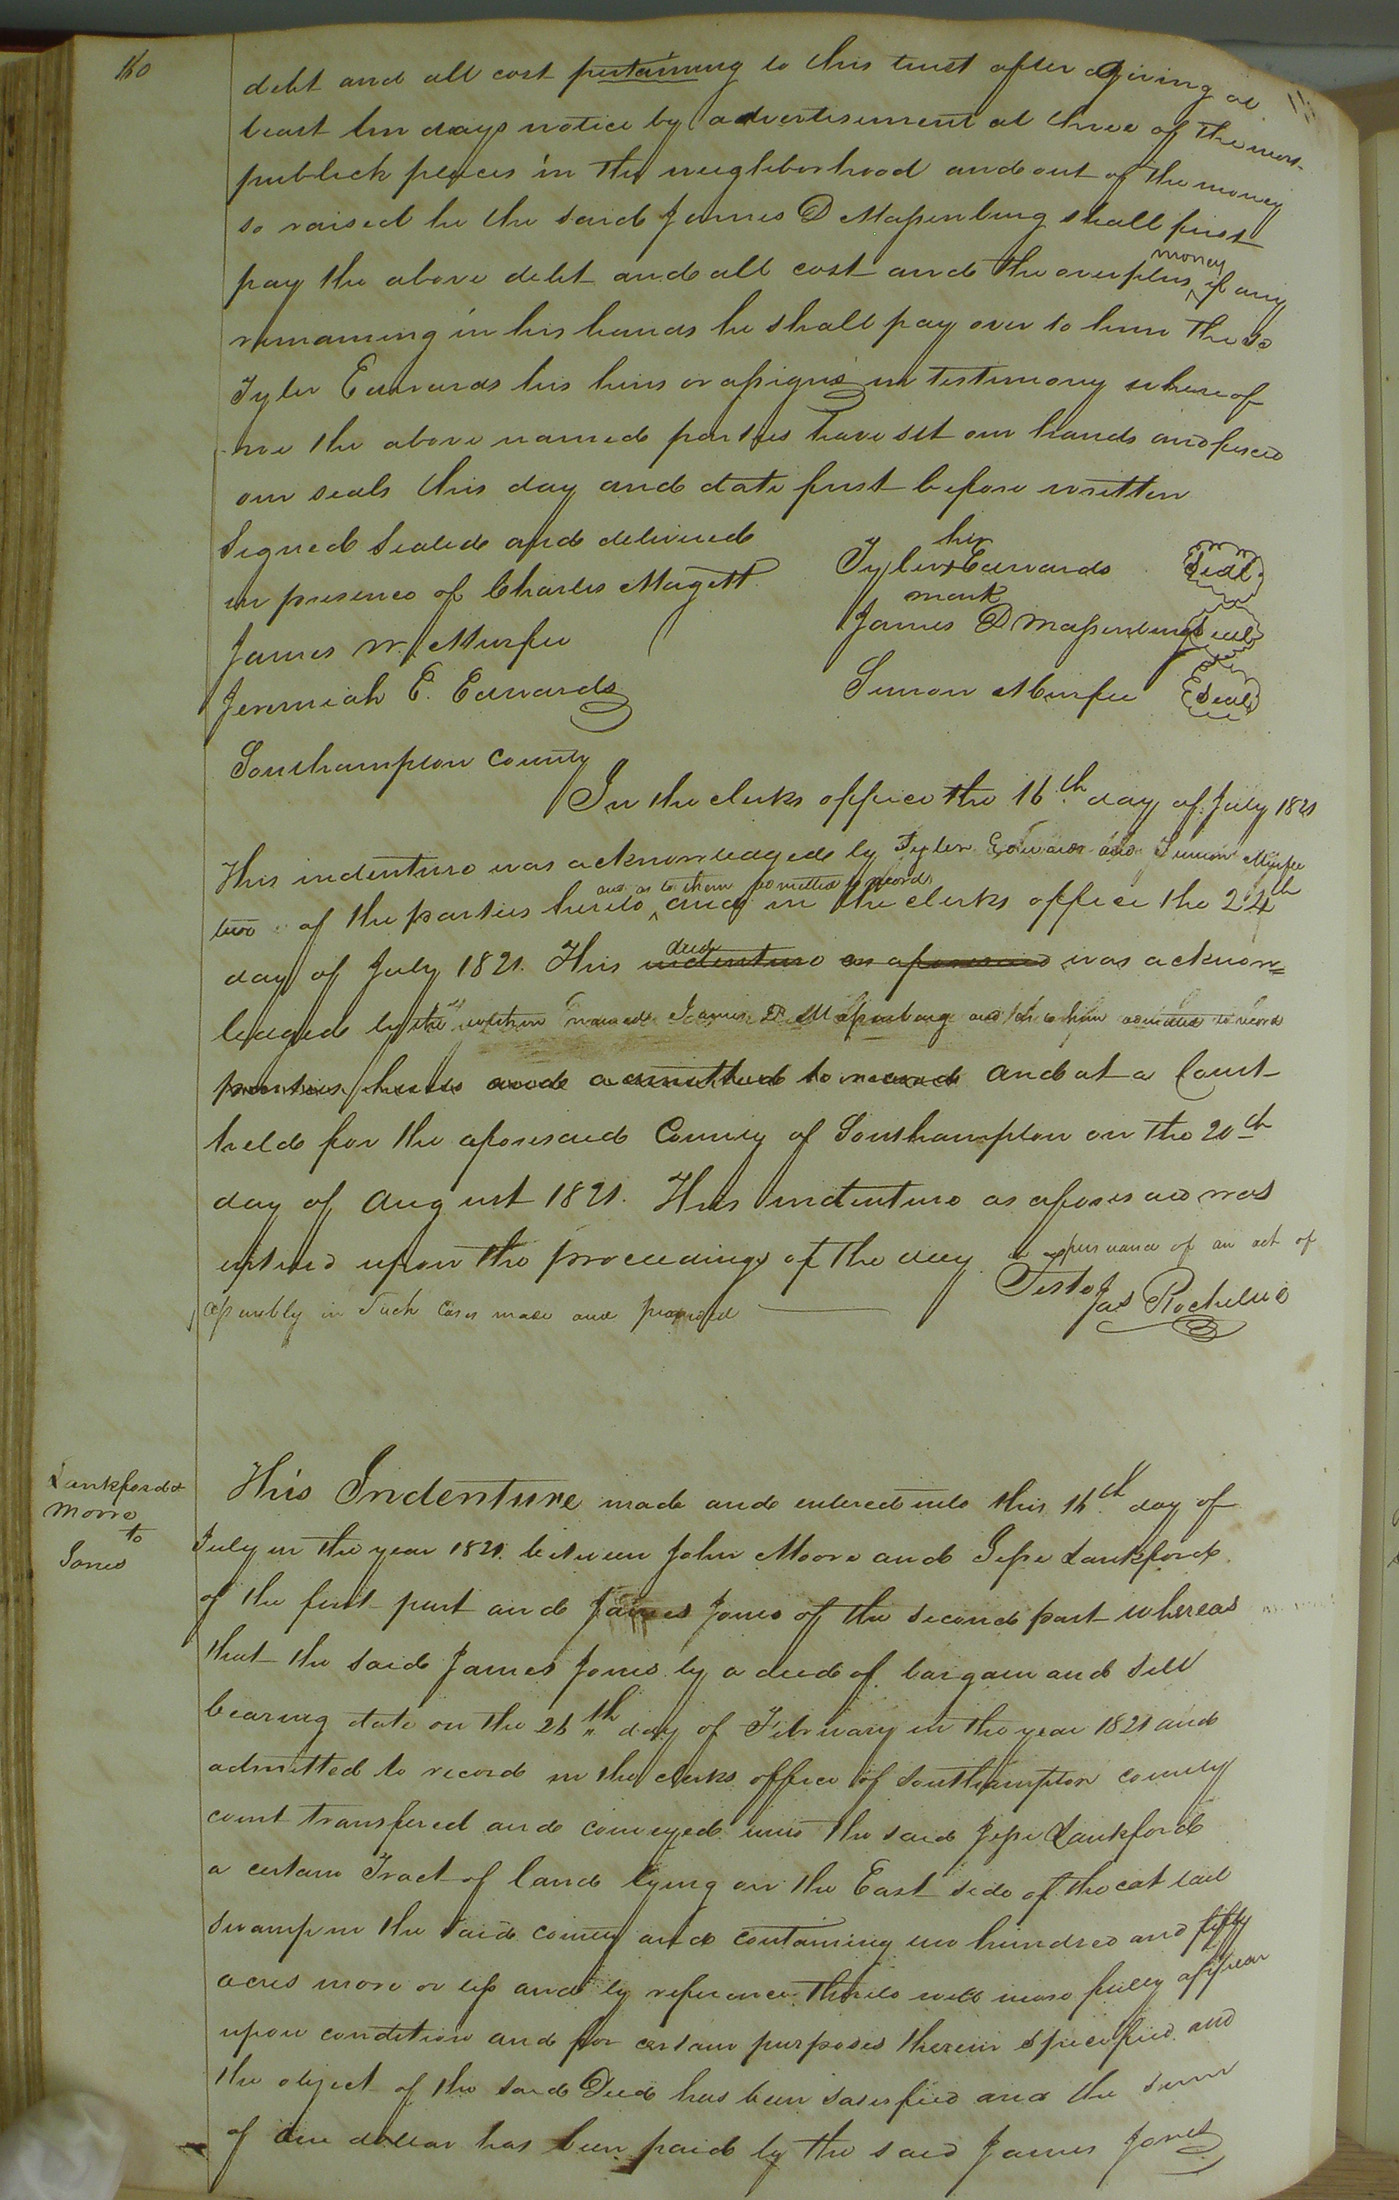 160
debt and all cost pertaining to this trust after giving at
least ten days notice by advertisement at three of the most
publick places in the neighborhood and out of the money
so raised he the said James D Massenburg shall first
money
pay the above debt and all cost and the overplus ^ if any
remaining in his hands he shall pay over to him the sd
Tyler Edwards his heirs or assigns in testimony whereof
we the above named parties have set our hands and fixed
our seals this day and date first before written
Signed Sealed and delivered
in presence of Charles Magett
James W. Murfee
Jeremiah E. Edwards
his
Tyler x Edwards Seal
mark
James D Massenburg Seal
Simon Murfee Seal
Southampton County
In the clerks office the 16th day of July 1821
This indenture was acknowledged by Tyler Edwards and Simon Murfee
and as to them admitted to record
two of the parties hereto ^ and in the clerks office the 24th
deed
day of July 1821. This indenture as aforesaid was acknow=
ledged by the within named James D Massenburg and as to him admitted to record
parties hereto and admitted to record and at a Court
held for the aforesaid County of Southampton on the 20th
day of August 1821. This indenture as aforesaid was
entered upon the proceedings of the day in pursuance of an act of
assembly in Such Cases made and provided
Teste Jas Rochelle
Lankford &
Moore
to
Jones
This Indenture made and entered into this 16th day of
July in the year 1821. between John Moore and Jesse Lankford
of the first part and James Jones of the second part whereas
that the said James Jones by a deed of bargain and sell
bearing date on the 26th day of February in the year 1821 and
admitted to record in the clerks office of Southampton county
court transfered and conveyed unto the said Jesse Lankford
a certain Tract of land lying on the East side of the cat tail
swamp in the said county and containing two hundred and fifty
acres more or less and by reference thereto will more fully appear
upon condition and for certain purposes therein specified and
the object of the said Deed has been satisfied and the sum
of one dollar has been paid by the said James Jones